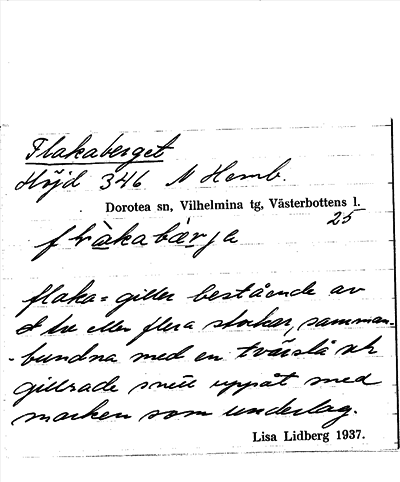 Flakaberget
Höjd 346 N Hemb.
Dorotea sn, Vilhelmina tg, Västerbottens l.
25
flàkabærje
flaka = giller bestående av
två eller flera stockar, samman-
bundna med en tvärslå och
gillrade snett uppåt med
marken som underlag.
Lisa Lidberg 1937.